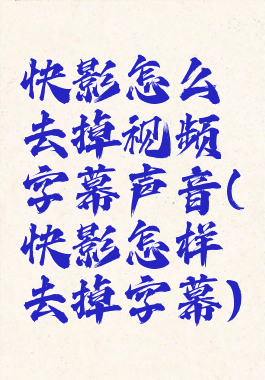 快影怎么
去掉视频
字幕声音(
快影怎样
去掉字幕)